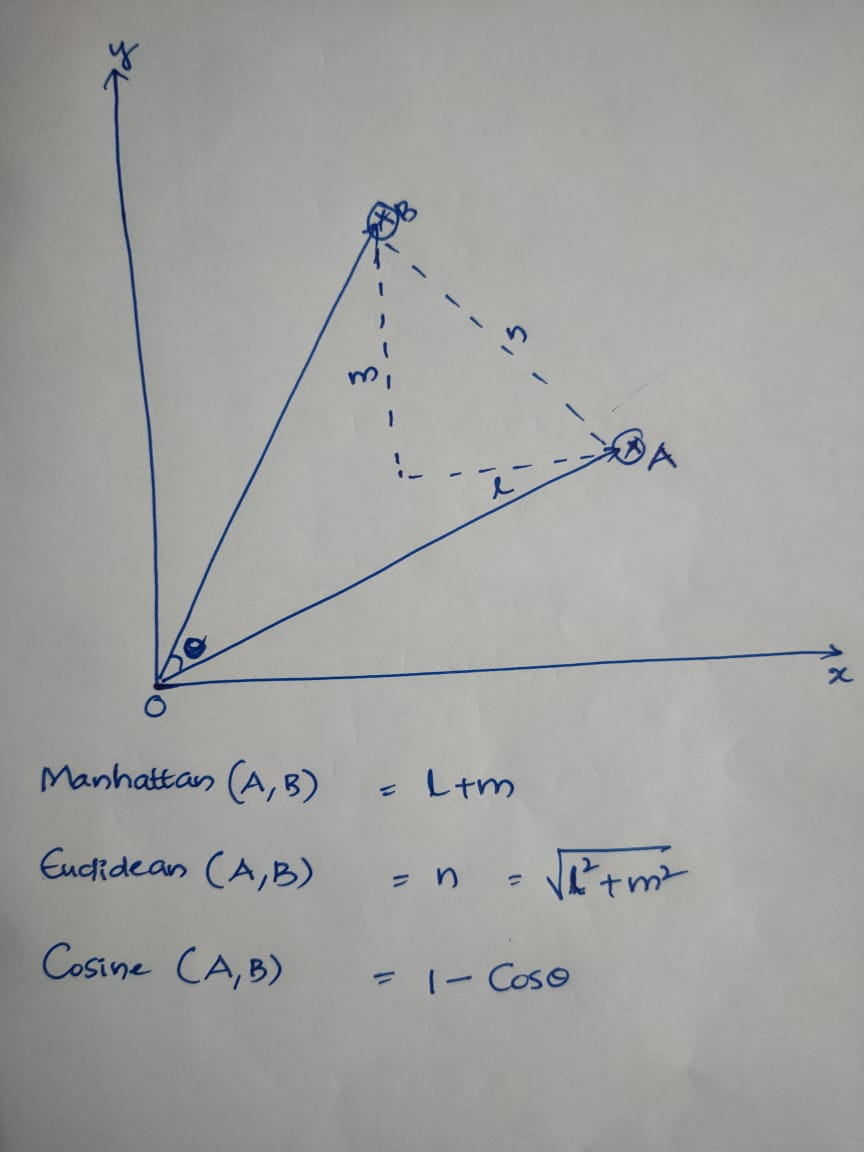 y
B
n
m
A
l
θ
x
O
Manhattan (A,B) = L+m
Euclidean (A,B) = n = √l²+m²
Cosine (A,B) = 1 - Cosθ